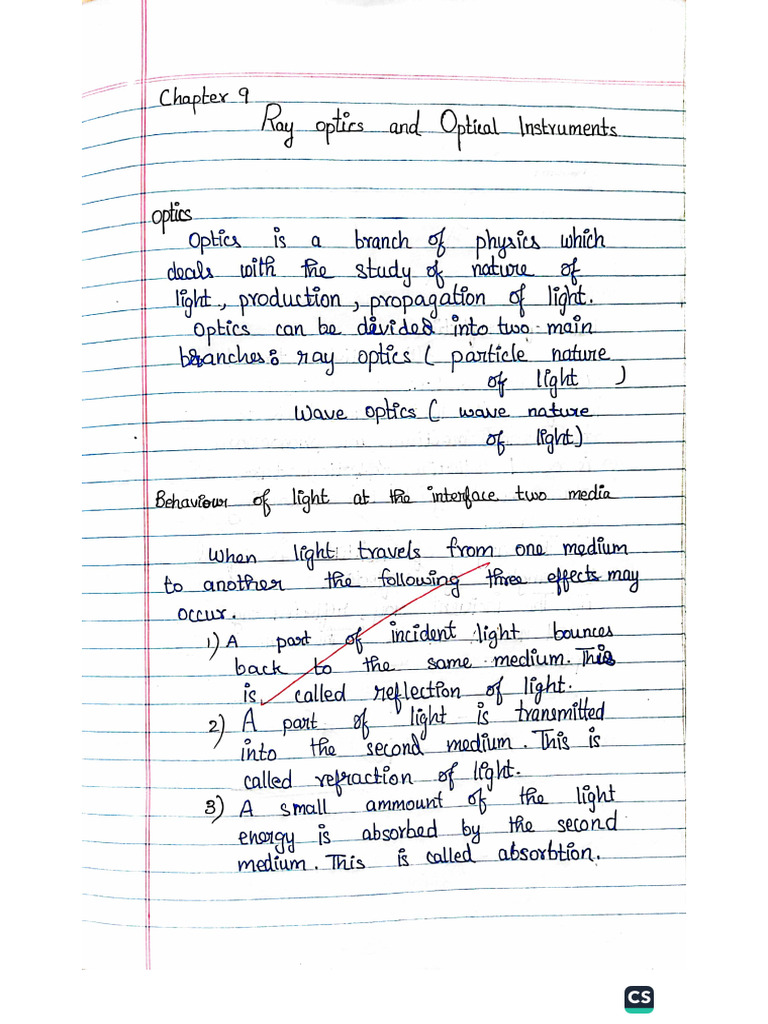 Chapter 9
Ray optics and Optical Instruments
optics
Optics is a branch of physics which
deals with the study of nature of
light, production, propagation of light.
Optics can be divided into two main
branches: ray optics ( particle nature
of light )
Wave optics ( wave nature
of light)
Behaviour of light at the interface two media
When light travels from one medium
to another the following three effects may
occur.
1) A part of incident light bounces
back to the same medium. This
is called reflection of light.
2) A part of light is transmitted
into the second medium. This is
called refraction of light.
3) A small ammount of the light
energy is absorbed by the second
medium. This is called absorbtion.
CS